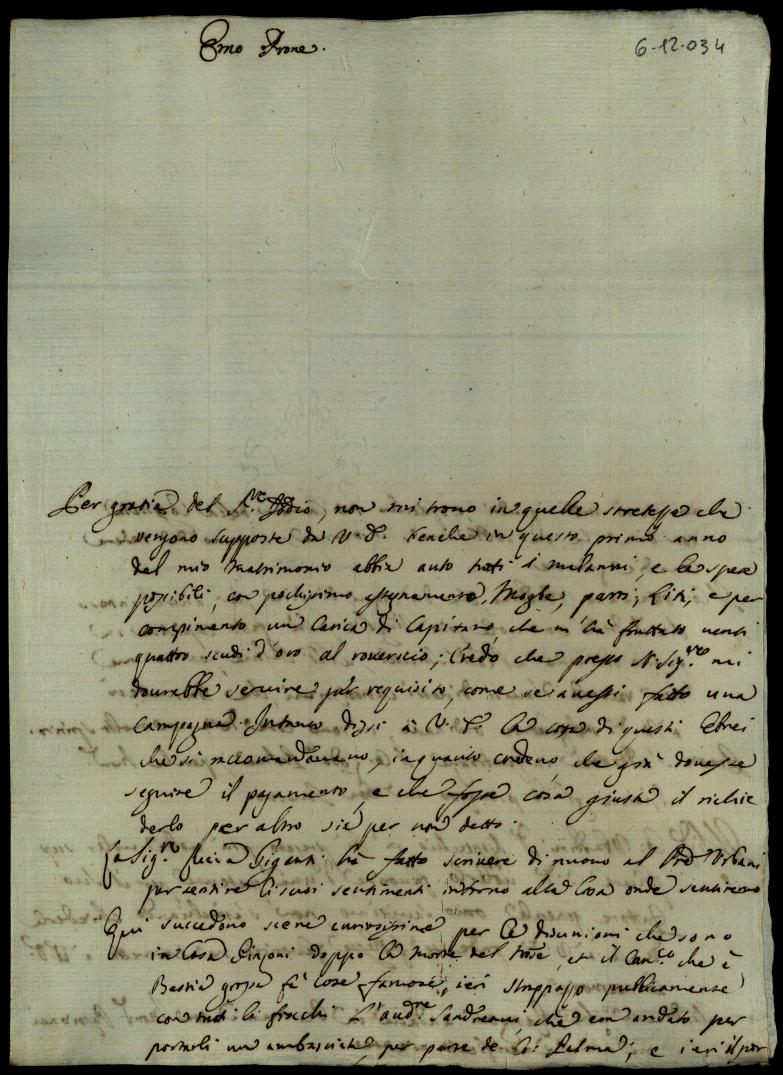 Emo Prone.
6-12-034
Per grazia del Sre Iddio, non mi trovo in quelle strettesse che
vengono supposte da V. E. benche in questo primo anno
del mio matrimonio abbia auto tutti i malanni, e le spese
possibili, con pochissimo assegnamento, Moglie, parti, Liti, e per
compimento un Carica di Capitano, che m'hà fruttato venti
quattro scudi d'oro al rovescio; Credo che presso N. Sigre mi
dovrebbe servire per requisito, come se avessi fatto una
Campagna. Intanto dissi à V. E. la cosa di questi Ebrei
che si raccomandavano, in quanto credevo che già dovesse
seguire il pagamento, e che fosse cosa giusta il richie
derlo per altro sia per non detto.
La Sigra Lucia Giganti hà fatto scrivere di nuovo al Urbani
per sentire li suoi sentimenti intorno alla Casa onde sentiremo
Qui succedono scene curiosissime per le disunioni che sono
in Casa doppo la morte del et il Canco che è
Bestia grossa fà cose famose, ieri strappazzò publicamente
con tutti li fiocchi L'audre Sandreani, che era andato per
portarli un ambasciata per parte de Palma; e ieri il por